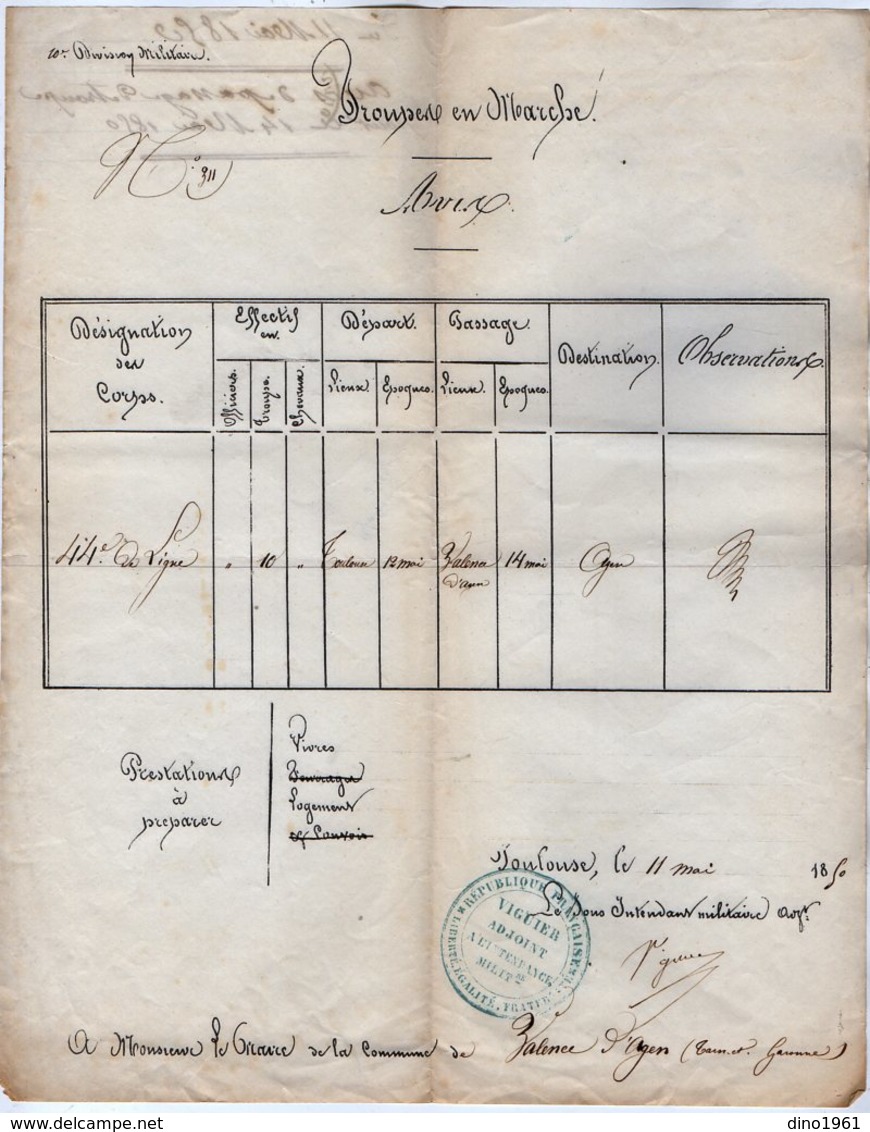 10e Division Militaire.
Troupes en Marche.
No 311
Avis.
Désignation des Corps.
Effectif en.
Officiers.
Troupe.
Chevaux.
Départ.
Lieux.
Epoques.
Passage.
Lieux.
Epoques.
Destination.
Observations.
44e de Ligne
"
10
"
Toulouse
12 mai
Valence d'agen
14 mai
Agen
Prestations à preparer
Vivres
Fourrages
Logement
et Convoi
Toulouse, le 11 mai 1850
Le Sous Intendant militaire adjt.
Viguier
RÉPUBLIQUE FRANÇAISE
LIBERTÉ, ÉGALITÉ, FRATERNITÉ
VIGUIER
ADJOINT
A L'INTENDANCE
MILITRE
A Monsieur le Maire de la Commune de Valence d'Agen (Tarn et Garonne)
11 Mai 1850
14 Mai 1850
dino1961